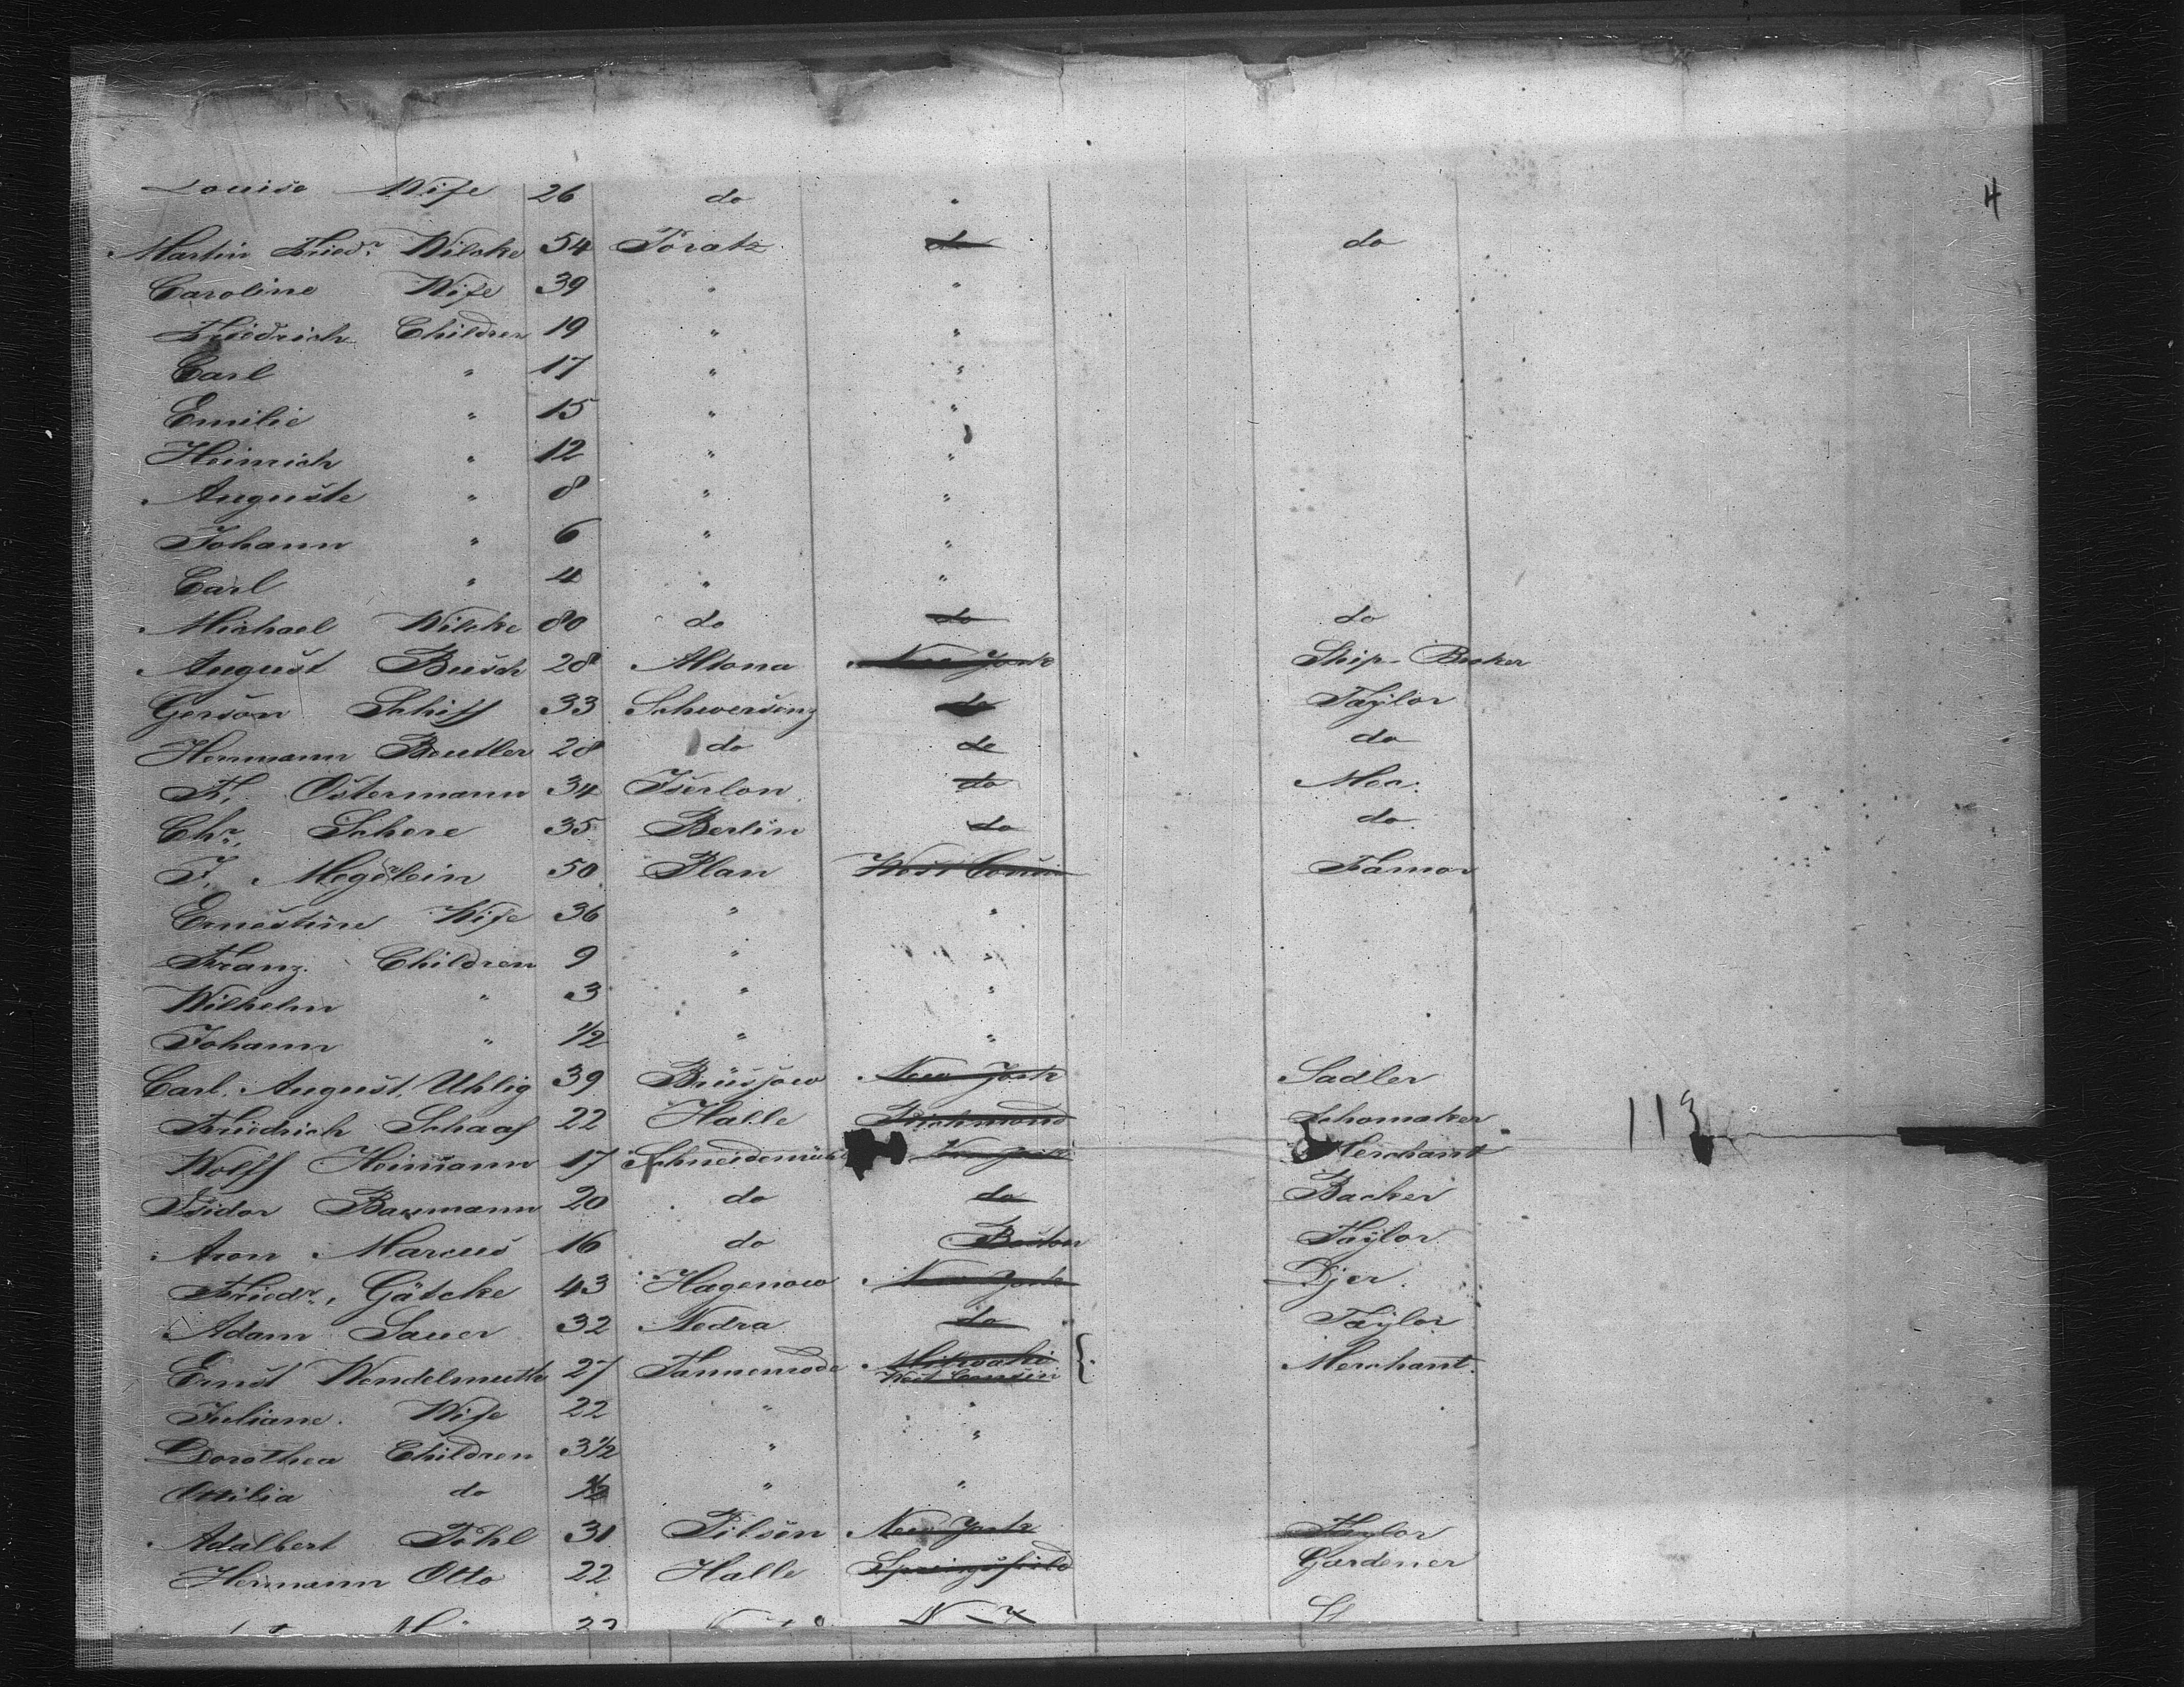 Louise Wife 26 do "
4
Martin Friedr. Wilcke 54 Poratz do do
Caroline Wife 39 " "
Friedrich Children 19 " "
Carl " 17 " "
Emilie " 15 " "
Heinrich " 12 " "
Auguste " 8 " "
Johann " 6 " "
Carl " 4 " "
Michael Wilcke 80 do do do
August Busch 28 Altona New York Ship-Broker
Gerson Schiff 33 Schwersenz do Taylor
Hermann Beutler 28 do do do
Fr. Ostermann 34 Iserlon do Mer.
Chr. Schere 35 Berlin do do
F. 50 Plan West Consin Famor
Ernestine Wife 36 " "
Franz Children 9 " "
Wilhelm " 3 " "
Johann " 1/2 " "
Carl August Uhlig 39 Brüssow New York Sadler
Friedrich Schaaf 22 Halle Richmond Schomaker
113
Wolff Heimann 17 Schneidemühl New York Merchant
Isidor Baumann 20 do do Backer
Aron Marcus 16 do Boston Taylor
Friedr. Gätcke 43 Hagenow New York Djer.
Adam Sauer 32 Nedra do Taylor
Ernst Wendelmuth 27 Tannerode Milwaki West Consin } Merchant
Juliane Wife 22 " "
Dorothea Children 3 1/2 " "
Ottilia do 1/2 " "
Adalbert Pohl 31 Pilsen New York Taylor
Hermann Otto 22 Halle Springsfield Gardener